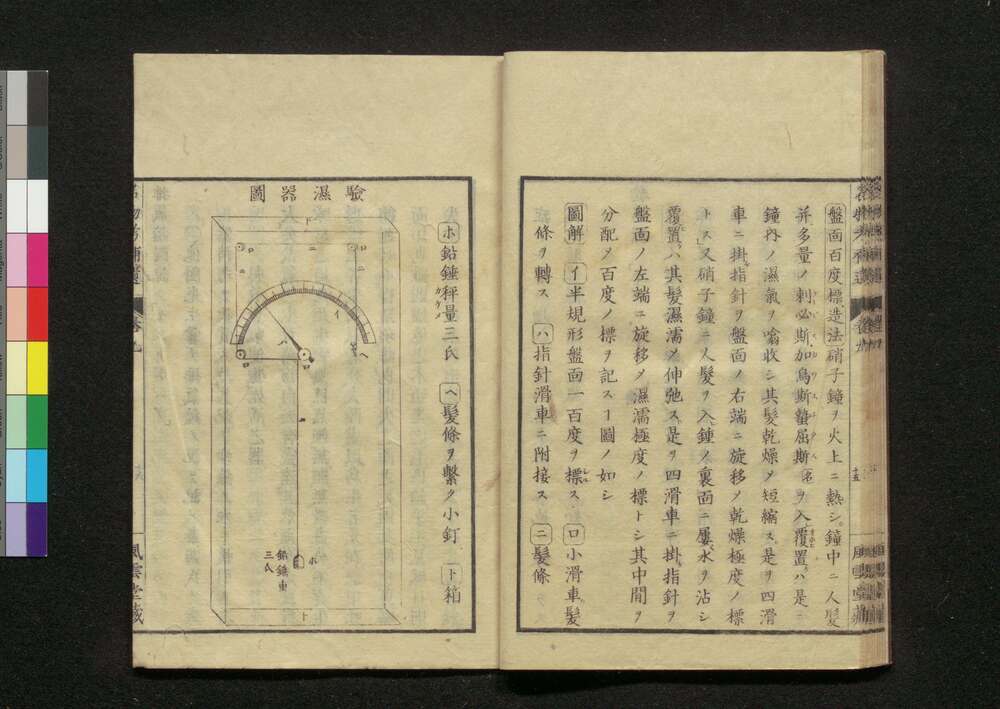 盤面百度標造法硝子鐘ヲ火上ニ熱シ。鐘中ニ人髪
并多量ノ刺必斯加烏斯蟄屈斯名ヲ入覆置ハ是ニ
鐘內ノ濕氣ヲ噏收シ其髪乾燥メ短縮ス是ヲ四滑
車ニ掛指針ヲ盤面ノ右端ニ旋移メ乾燥極度ノ標
トス又硝子鐘ニ人髪ヲ入鐘ノ裏面ニ屢水ヲ沾シ
覆置ハ其髪濕濡メ伸弛ス是ヲ四滑車ニ掛指針ヲ
盤面ノ左端ニ旋移メ濕濡極度ノ標トシ其中間ヲ
分配メ百度ノ標ヲ記スヿ圖ノ如シ
圖解 イ半規形盤面一百度ヲ標ス ロ小滑車髪
條ヲ轉ス ハ指針滑車ニ附接ス ニ髪條
ホ鉛錘秤量三氏 ヘ髪條ヲ繫ク小釘 ト箱
カケメ
驗濕器圖
ト
ロ
ニ
ロ
ニ
イ
ハ
ヘ
ロ
ロ
ニ
ホ
鉛錘重
三氏
ト
風雲堂藏